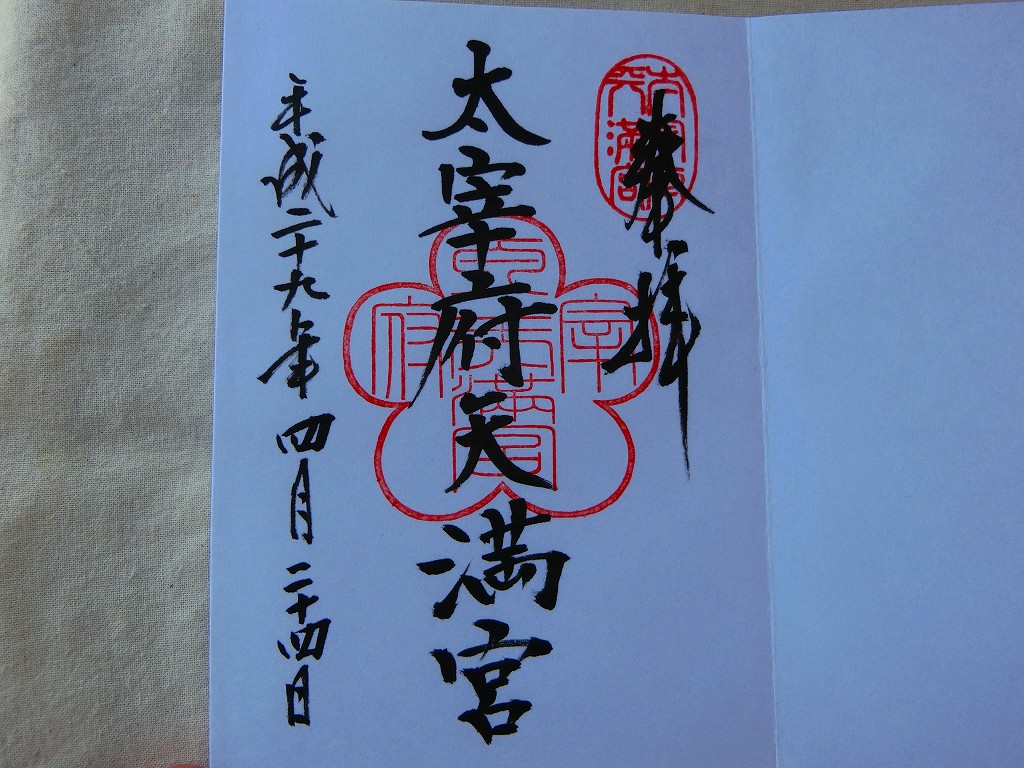 奉拝
太宰府天満宮
平成二十九年四月二十四日